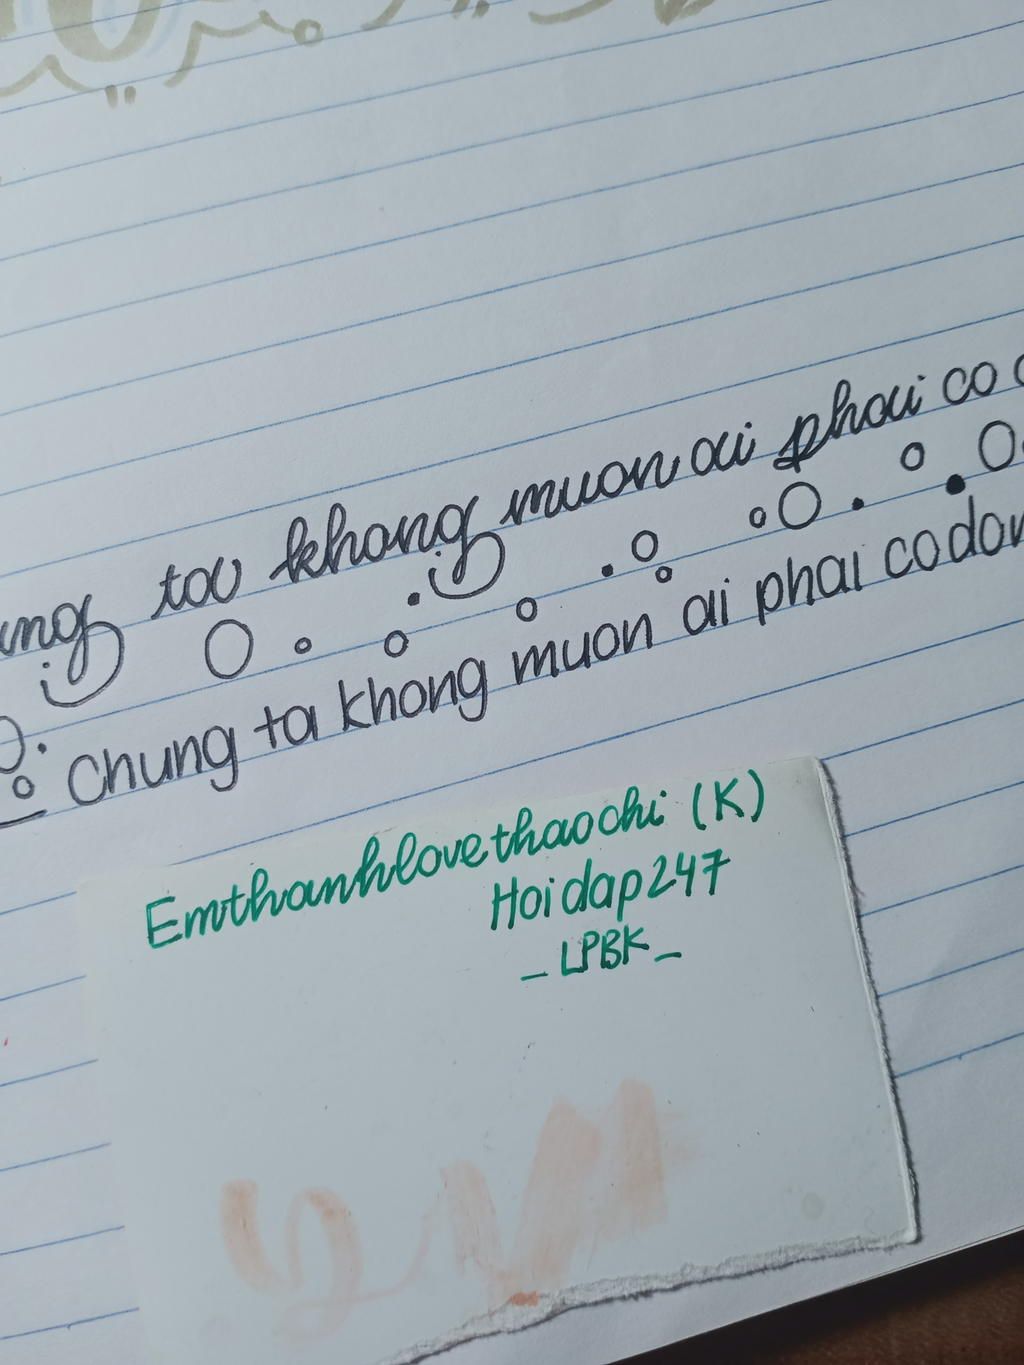 ta khong muon ai phai co
Chung ta khong muon ai phai co don
Emthanhlovethaochi (K)
Hoidap247
_ LPBK _